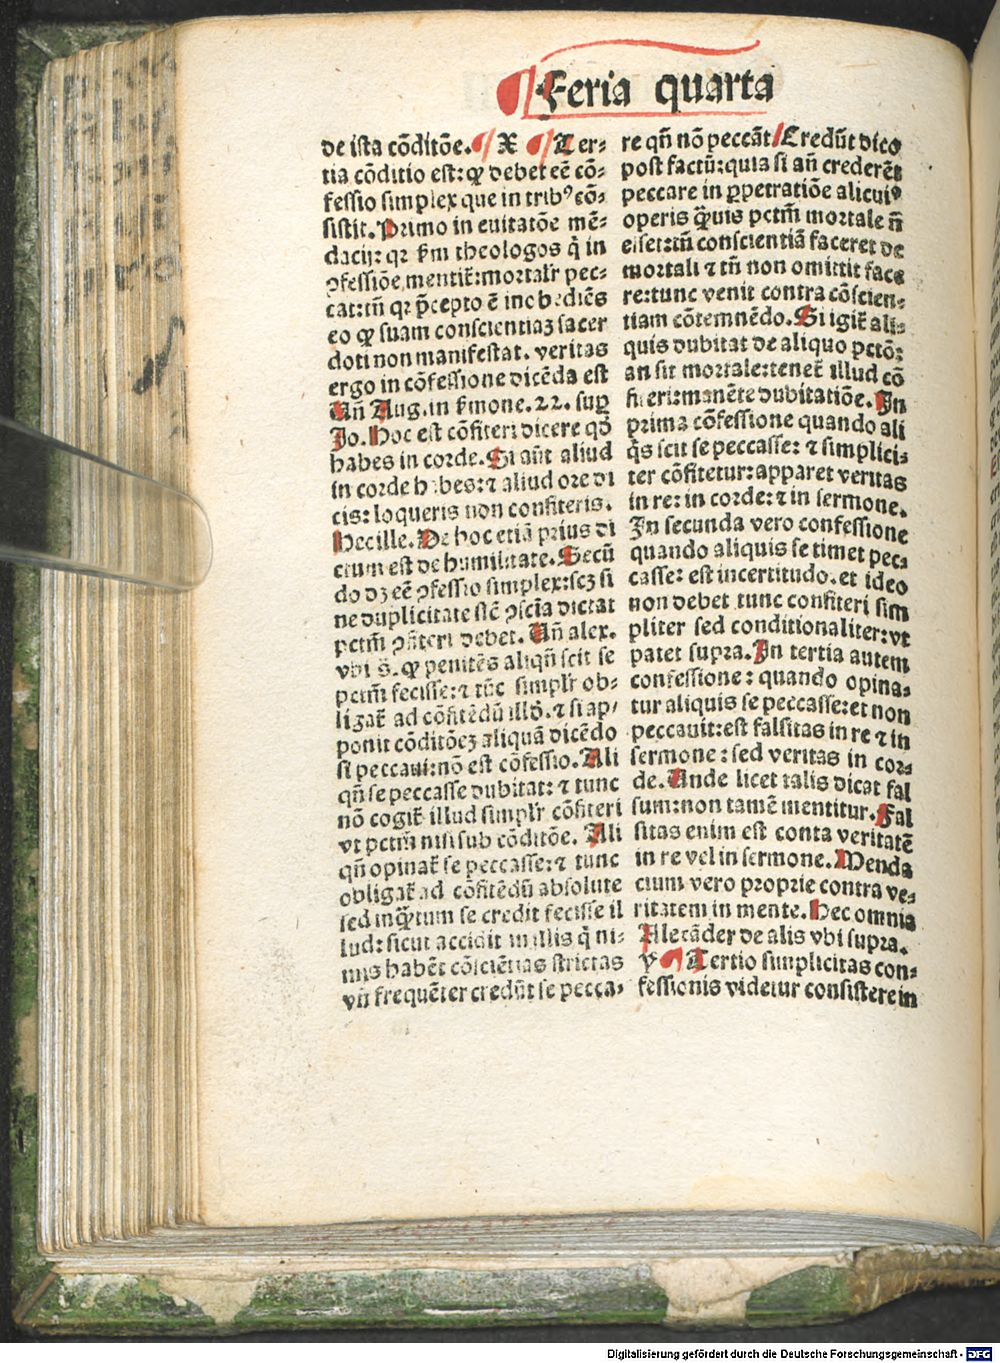 Feria quarta
de ista cōditōe. X Ter-
tia cōditio est: ꝙ debet eē cō-
fessio simplex que in tribꝰ cō-
sistit. Primo in euitatōe mē-
dacij: qꝛ ẜm theologos q̄ in
ꝯfessiōe mentit᷑: mortalr̄ pec-
cat: tn̄ qꝛ p̄cepto ē inobediēs
eo ꝙ suam conscientiaꝫ sacer
doti non manifestat. veritas
ergo in cōfessione dicēda est
Un̄ Aug. in ẜmone. 22. suꝑ
Jo. Hoc est cōfiteri dicere qd̄
habes in corde. Si aūt aliud
in corde habes: ⁊ aliud ore di
cis: loqueris non confiteris.
Hec ille. De hoc etiā prius di
ctum est de humilitate. Secū
do dꝫ eē ꝯfessio simplex: scꝫ si
ne duplicitate sic̄ ꝯsciā dictat
pctm̄ ꝯfiteri debet. Un̄ alex.
vbi s̄. ꝙ penitēs aliqn̄ scit se
pctm̄ fecisse: ⁊ tūc simplr̄ ob-
ligat᷑ ad cōfitēdū illd̄. ⁊ si ap-
ponit cōditōeꝫ aliquā dicēdo
si peccaui: nō est cōfessio. Ali
qn̄ se peccasse dubitat: ⁊ tunc
nō cogit᷑ illud simplr̄ cōfiteri
vt pctm̄ nisi sub cōditōe. Ali
qn̄ opinat᷑ se peccasse: ⁊ tunc
obligat᷑ ad cōfitēdū absolute
sed inq̄ꝫtum se credit fecisse il
lud: sicut accidit in illis q̄ ni-
mis habēt cōsciētias strictas
vn̄ frequēter credūt se pecca-
re qn̄ nō peccāt Credūt dico
post factū: quia si an̄ crederēt
peccare in ꝑpetratiōe alicuiꝰ
operis q̄ꝫuis pctm̄ mortale n̄
esset: tn̄ conscientiā faceret de
mortali ⁊ tn̄ non omittit face
re: tunc venit contra cōscien-
tiam cōtemnēdo. Si igit᷑ ali-
quis dubitat de aliquo pctō:
an sit mortale: tenet᷑ illud cō
fiteri: manēte dubitatiōe. In
prima cōfessione quando ali
q̄s scit se peccasse: ⁊ simplici-
ter cōfitetur: apparet veritas
in re: in corde: ⁊ in sermone.
In secunda vero confessione
quando aliquis se timet pec-
casse: est incertitudo. et ideo
non debet tunc confiteri sim
pliter sed conditionaliter: vt
patet supra. In tertia autem
confessione: quando opina-
tur aliquis se peccasse: et non
peccauit: est falsitas in re ⁊ in
sermone: sed veritas in cor-
de. Unde licet talis dicat fal
sum: non tamē mentitur. Fal
sitas enim est conta veritatē
in re vel in sermone. Menda
cium vero proprie contra ve-
ritatem in mente. Hec omnia
Alexāder de alis vbi supra.
Y Tertio simplicitas con-
fessionis videtur consistere in
Digitalisierung gefördert durch die Deutsche Forschungsgemeinschaft - DFG